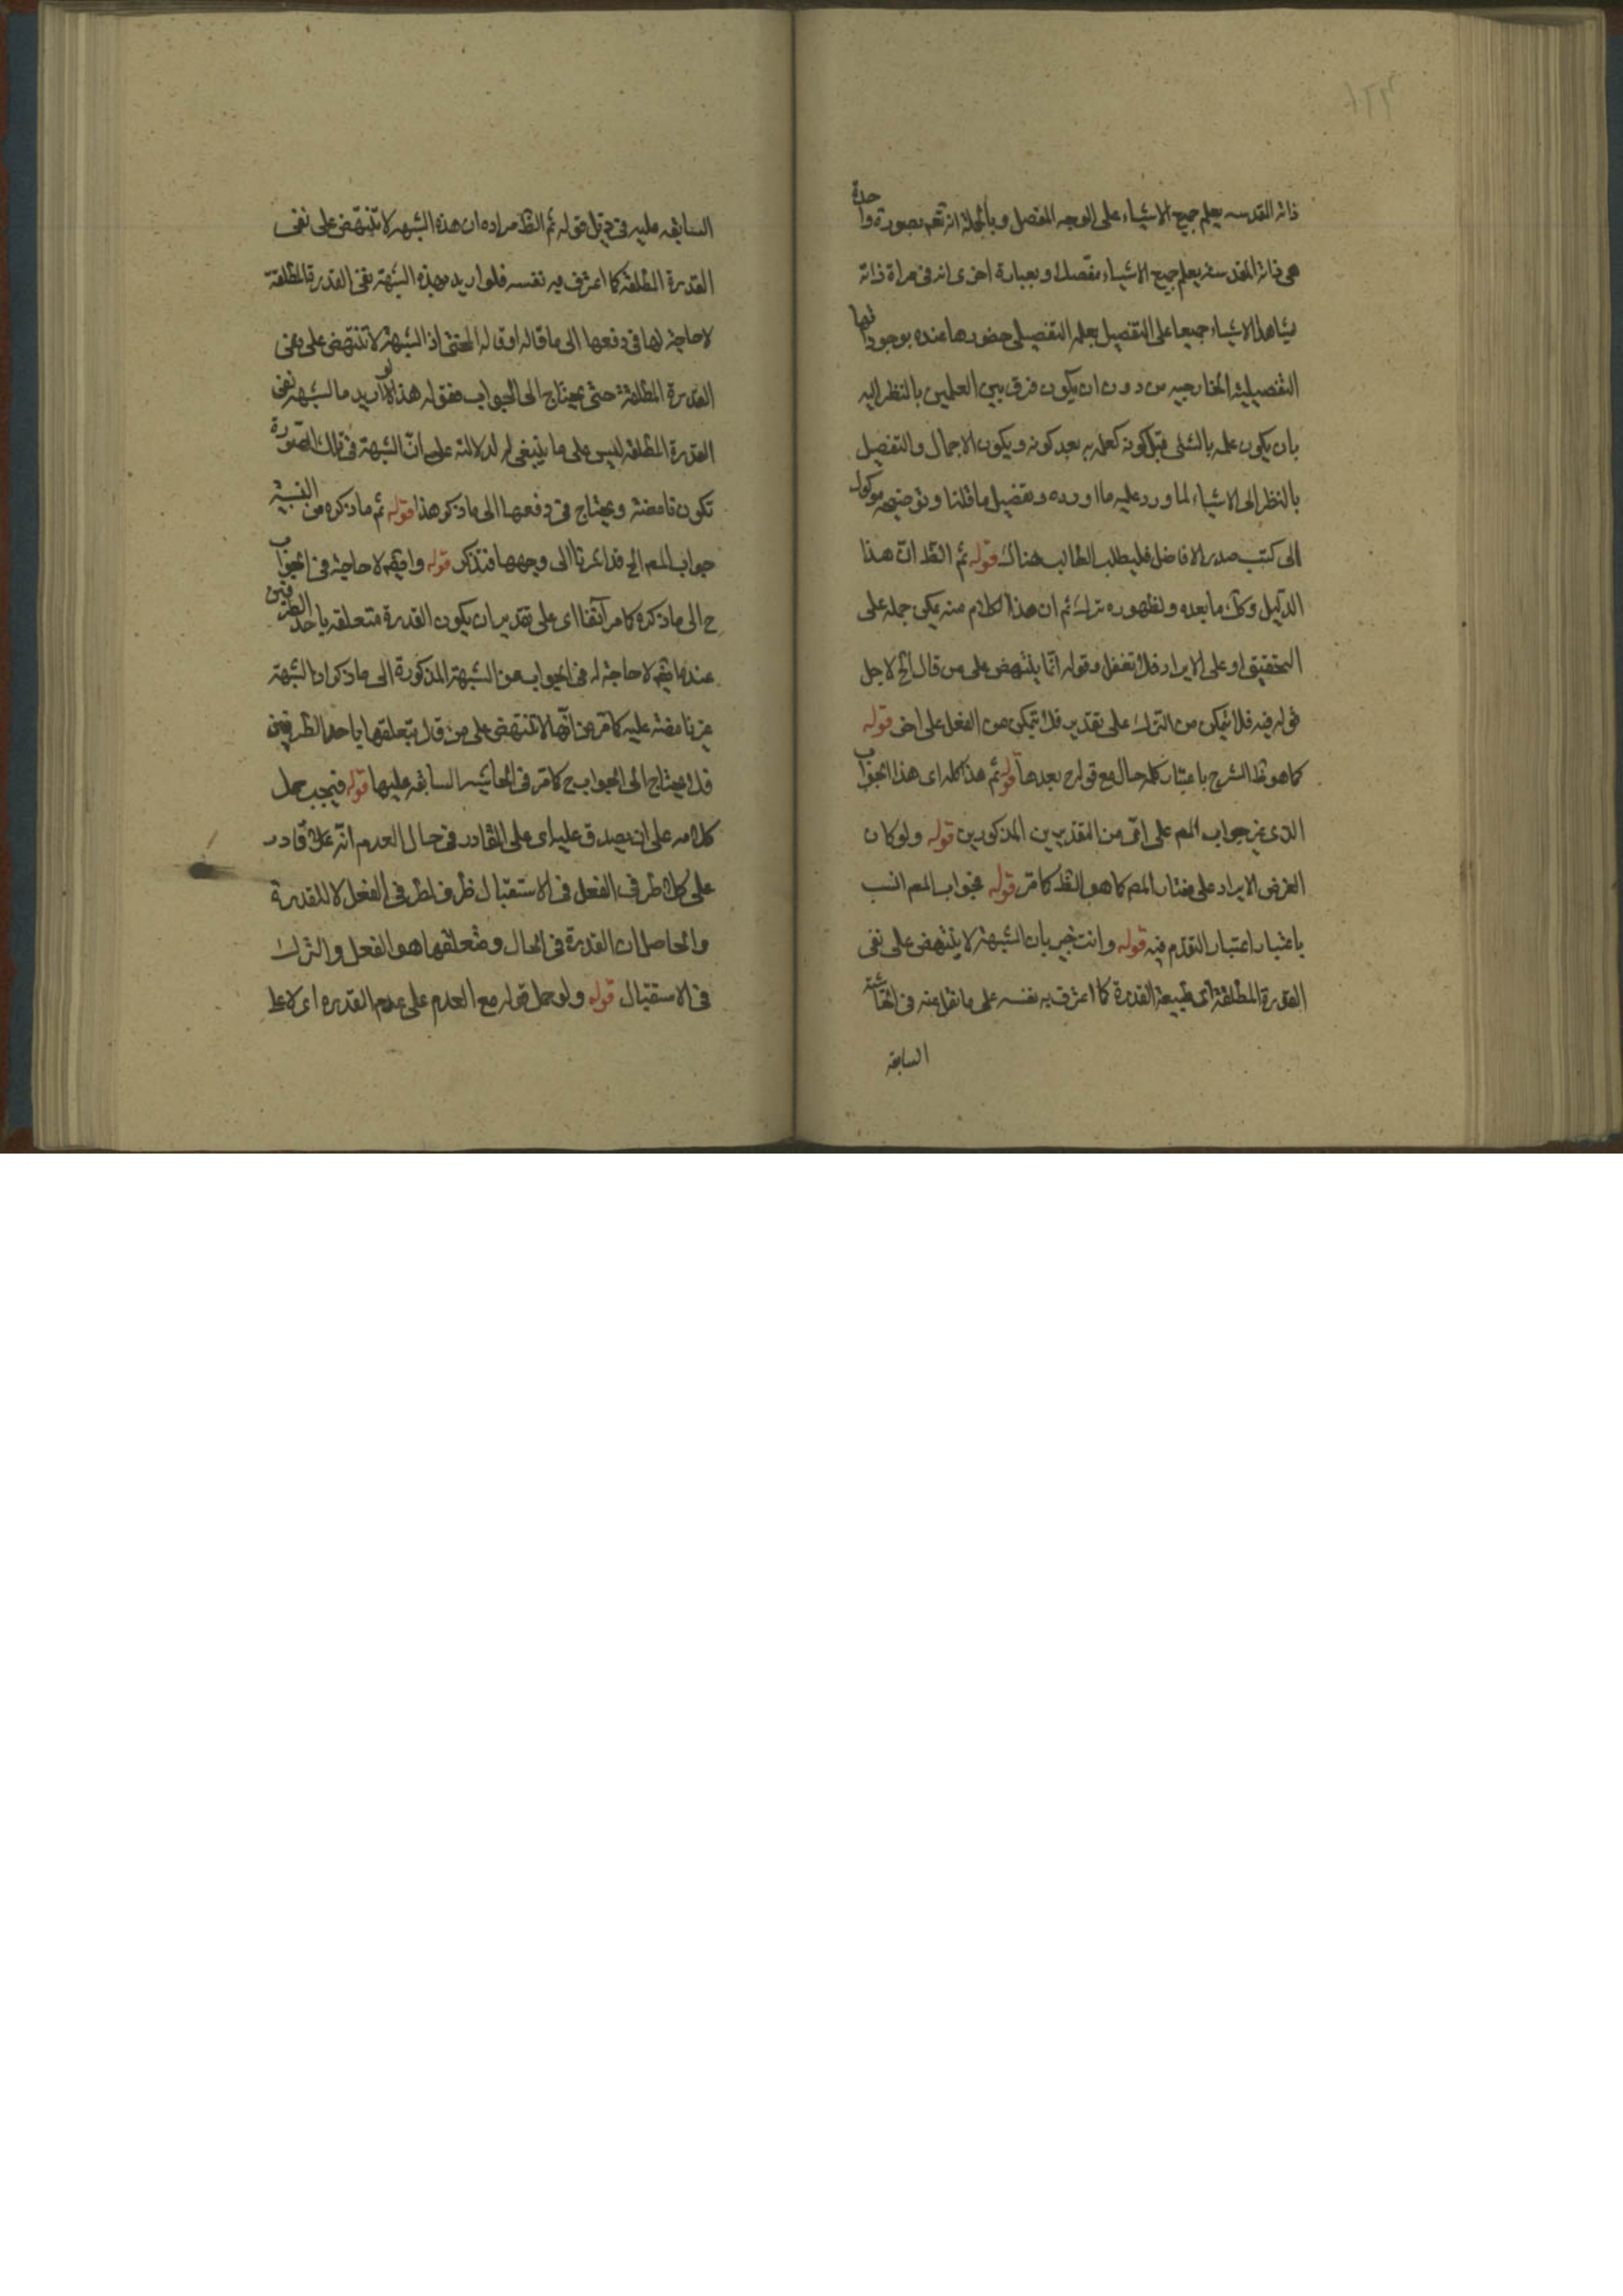 ذاته القدسه يعلم جميع الاشياء على الوجه المفصل وبالجملة انه تعم بصورة واحدة
هى ذاته المقدسه يعلم جميع الاشياء مفصلا وبعبارة اخرى انه فى مراة ذاته
يشاهد الاشياء جميعا على التفصيل بعلمه التفصيلى حضورها عنده بوجوداتها
التفصيلية الخارجيه من دون ان يكون فرق بين العلمين بالنظر اليه
بان يكون علمه بالشئ قبل كونه كعلمه به بعد كونه ويكون الاجمال والتفصيل
بالنظر الى الاشياء لما ورد عليه ما اورده وتفصيل ما قلنا وتوضيحه موكول
الى كتب صدر الافاضل فليطلب الطالب هناك قوله ثم الظ ان هذا
الدليل وكك ما بعده ولظهوره ترك ثم ان هذا الكلام منه يمكن حمله على
التحقيق او على الايراد فلا تغفل وقوله انما ينتهض على من قال الخ لاجل
قوله فيه فلا يتمكن من الترك على تقدير فلا يتمكن من الفعل على اخر قوله
كما هو ظ الشرح باعتبار كلمة حال مع قوله ح بعدها قوله ثم هذا كله اى هذا الجواب
الذى من جواب المص على اى من التقديرين المذكورين قوله ولو كان
الغرض الايراد على مختار المص كما هو الظ كما مر قوله فجواب المص انسب
باعتبار اعتبار التقدم فيه قوله وانت خبير بان الشبهة لا ينتهض على نفى
القدرة المطلقة اى طبيعة القدرة كما اعترف به نفسه على ما نقل عنه فى الحاشية
السابقه
السابقه عليه فى ذيل قوله ثم الظ مراده ان هذه الشبهه لا تنتهض على نفى
القدرة المطلقة كما اعترف به نفسه فلو اريد بهذه الشبهة نفى القدرة المطلقة
لا حاجة لها فى دفعها الى ما قاله او قاله المحشى اذ الشبهة لا تنتهض على نفى
القدرة المطلقة حتى يحتاج الى الجواب فقوله هذا لو اريد بالشبهه نفى
القدرة المطلقه ليس على ما ينبغى له لدلالته على ان الشبهة فى تلك الصورة
تكون ناهضة ويحتاج فى دفعها الى ما ذكر هذا قوله ثم ما ذكره من النسبة
جواب المص الخ قد اشرنا الى وجهها فتذكر قوله وايضا لا حاجة فى الجواب
ح الى ما ذكره كما مر آنفا اى على تقدير ان يكون القدرة متعلقه باحد الطرفين
عندهم لا حاجة له فى الجواب عن الشبهة المذكورة الى ما ذكر اذ الشبهة
غير ناهضة عليه كما مر من انها لا تنتهض على من قال بتعلقها باحد الطرفين
فلا يحتاج الى الجواب ح كما مر فى الحاشيه السابقه عليها قوله فيجب حمل
كلامه على ان يصدق عليه اى على القادر فى حال العدم انه قادر
على كلا طرفى الفعل فى الاستقبال ظرف لطرفى الفعل لا للقدرة
والحاصل ان القدرة فى الحال ومتعلقها هو الفعل والترك
فى الاستقبال قوله ولو حمل قوله مع العدم على عدم القدره اى لا على